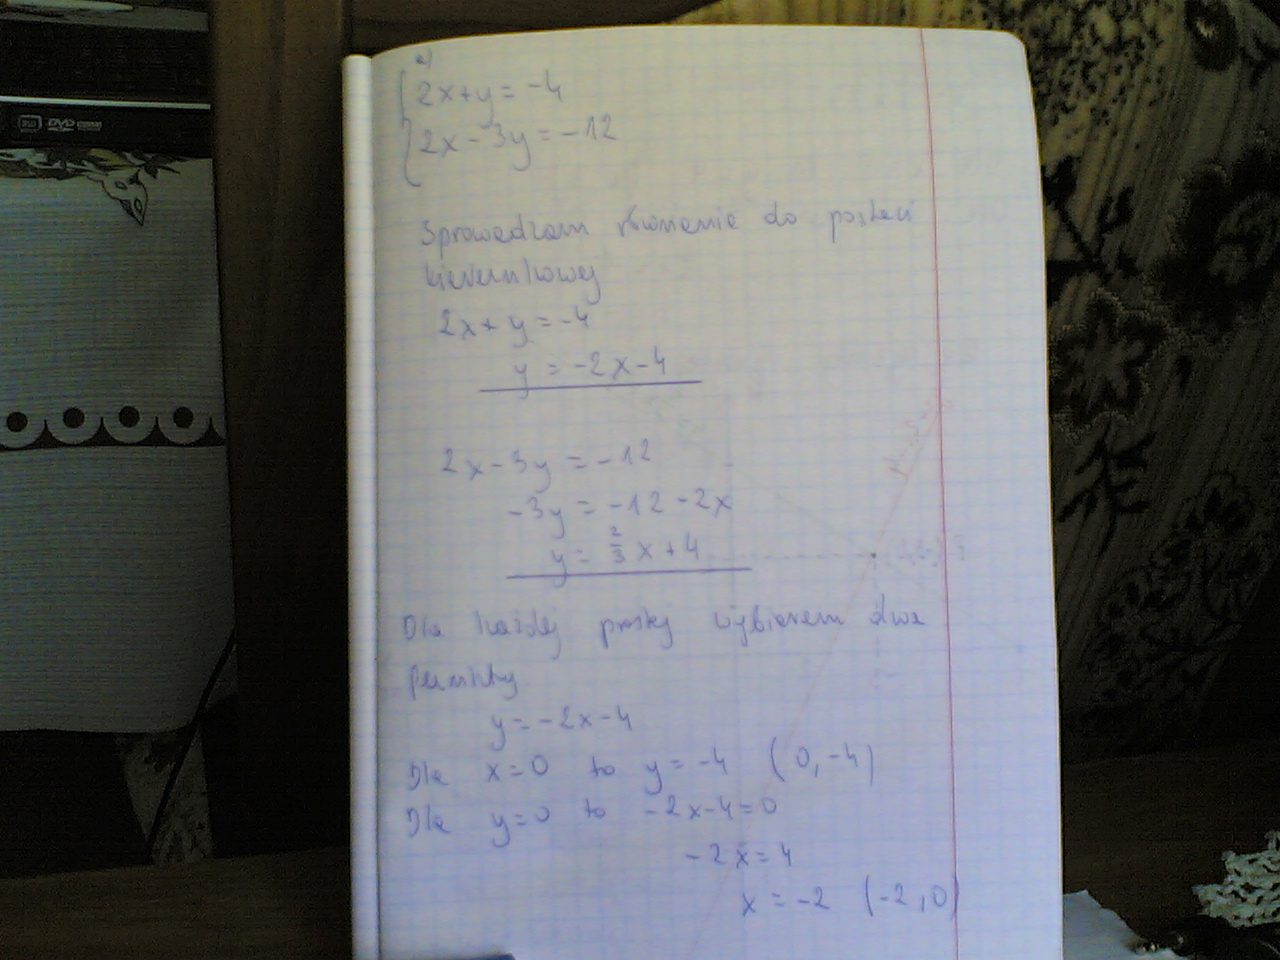 a)
2x+y=-4
2x-3y=-12
Sprowadzam równanie do postaci
kierunkowej
2x+y=-4
y=-2x-4
2x-3y=-12
-3y=-12-2x
y=2/3x+4
Dla każdej prostej wybieram dwa
punkty
y=-2x-4
Dla x=0 to y=-4 (0,-4)
Dla y=0 to -2x-4=0
-2x=4
x=-2 (-2,0)
DVD